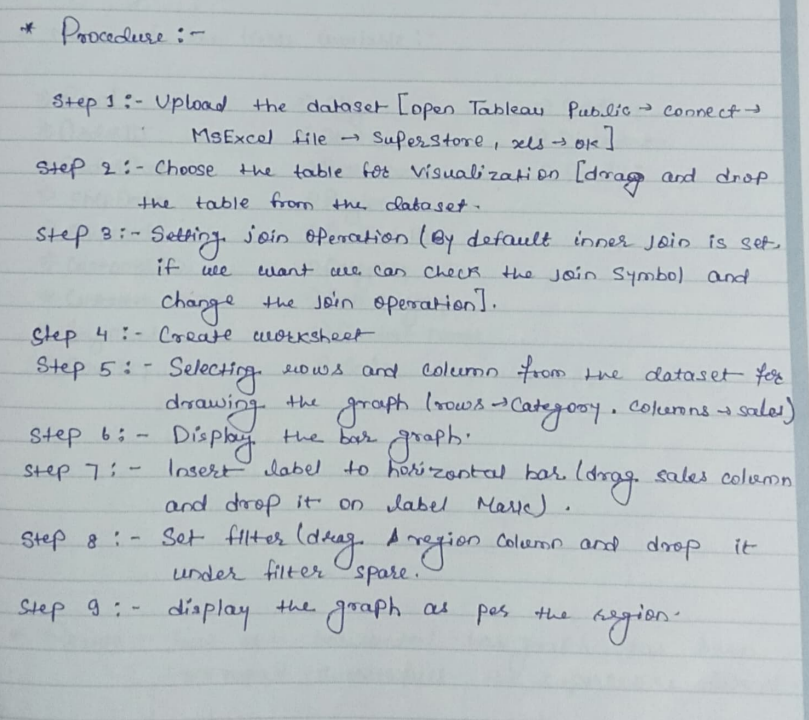 * Procedure :-
Step 1 :- Upload the dataset [open Tableau Public → connect →
MsExcel file → Superstore, xls → ok]
Step 2 :- Choose the table for Visualization [drag and drop
the table from the dataset.
Step 3 :- Setting join operation (By default inner join is set,
if we want we can check the join symbol and
change the join operation].
Step 4 :- Create worksheet
Step 5 :- Selecting rows and column from the dataset for
drawing the graph (rows → Category. columns → sales)
Step 6 :- Display the bar graph.
Step 7 :- Insert label to horizontal bar (drag sales column
and drop it on label Mark).
Step 8 :- Set filter (drag A region column and drop it
under filter spare.
Step 9 :- display the graph as per the region.